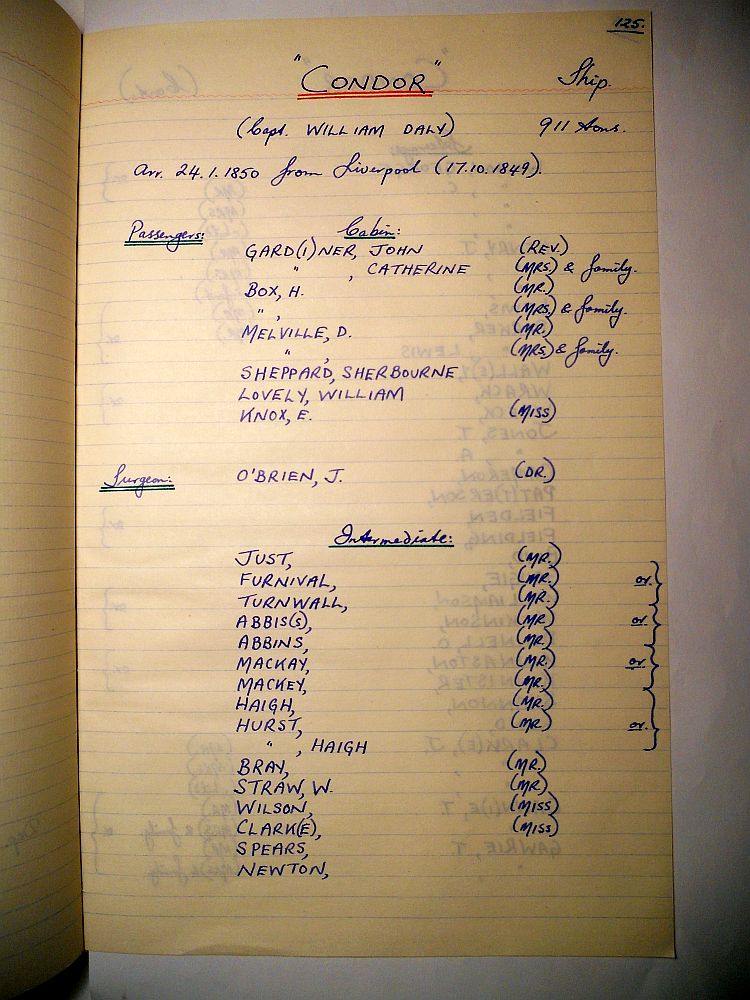 125.
"CONDOR" Ship.
(Capt. WILLIAM DALY) 911 tons.
Arr. 24.1.1850 from Liverpool (17.10.1849).
Passengers: Cabin:
GARD(I)NER, JOHN (REV.)
" , CATHERINE (MRS) & family.
BOX, H. (MR.)
" , (MRS) & family.
MELVILLE, D. (MR.)
" , (MRS) & family.
SHEPPARD, SHERBOURNE
LOVELY, WILLIAM
KNOX, E. (MISS)
Surgeon: O'BRIEN, J. (DR.)
Intermediate:
JUST, (MR.)
FURNIVAL, (MR.) or }
TURNWALL, (MR.)
ABBIS(S), (MR.) or }
ABBINS, (MR.)
MACKAY, (MR.) or }
MACKEY, (MR.)
HAIGH, (MR.)
HURST, (MR.) or }
" , HAIGH
BRAY, (MR.)
STRAW, W. (MR.)
WILSON, (MISS)
CLARK(E), (MISS)
SPEARS,
NEWTON,